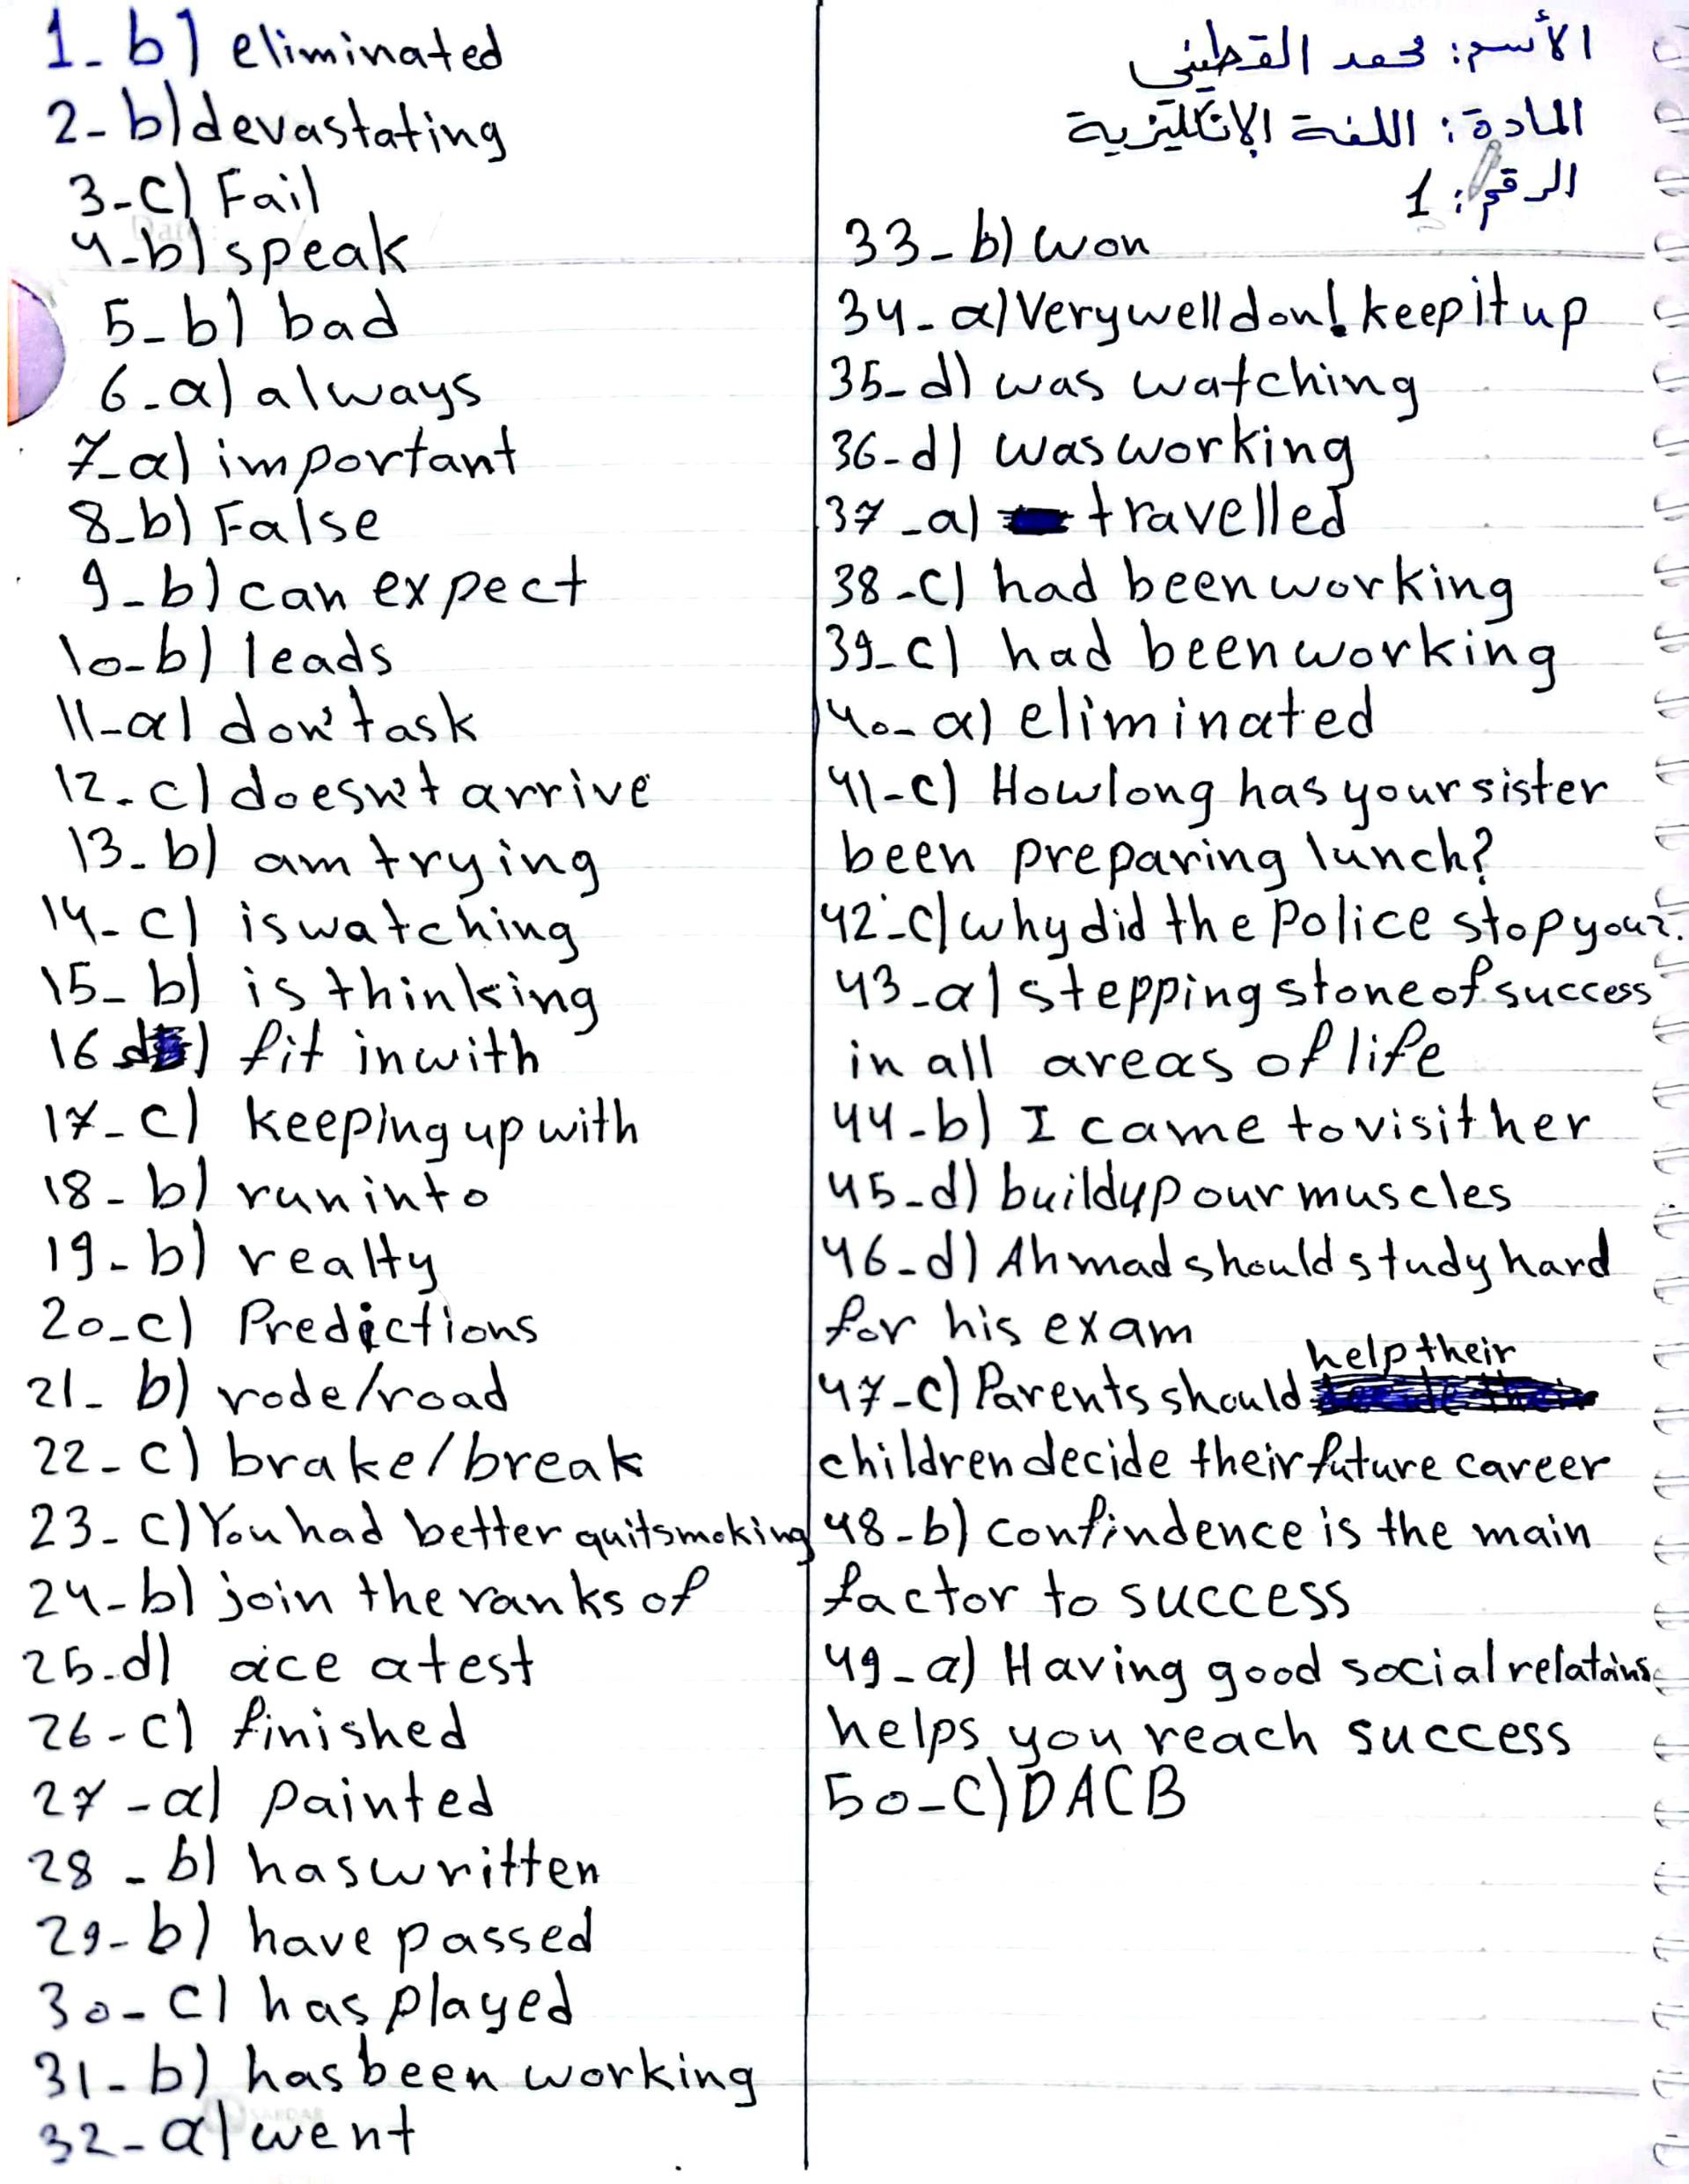 الأسم: محمد القطيني
المادة: اللغة الإنكليزية
الرقم: 1
1- b) eliminated
2- b) devastating
3- c) Fail
4- b) speak
5- b) bad
6- a) always
7- a) important
8- b) False
9- b) can expect
10- b) leads
11- a) don't ask
12- c) doesn't arrive
13- b) am trying
14- c) is watching
15- b) is thinking
16 d) fit in with
17- c) keeping up with
18- b) run into
19- b) realty
20- c) Predictions
21- b) rode/road
22- c) brake/break
23- c) You had better quit smoking
24- b) join the ranks of
25- d) ace a test
26- c) finished
27- a) painted
28- b) has written
29- b) have passed
30- c) has played
31- b) has been working
32- a) went
33- b) won
34- a) Very well don! keep it up
35- d) was watching
36- d) was working
37- a) travelled
38- c) had been working
39- c) had been working
40- a) eliminated
41- c) How long has your sister
been preparing lunch?
42- c) why did the police stop you?
43- a) stepping stone of success
in all areas of life
44- b) I came to visit her
45- d) build up our muscles
46- d) Ahmad should study hard
for his exam
47- c) Parents should help their
children decide their future career
48- b) confindence is the main
factor to success
49- a) Having good social relatoins
helps you reach success
50- c) DACB